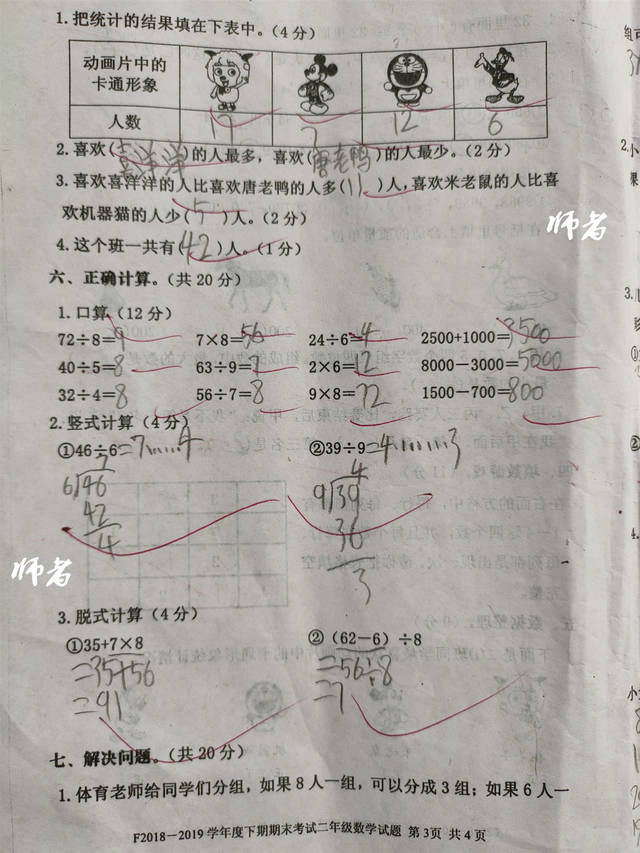 1.把统计的结果填在下表中。(4分)
动画片中的卡通形象
人数 17 7 12 6
2.喜欢(喜洋洋)的人最多，喜欢(唐老鸭)的人最少。(2分)
3.喜欢喜洋洋的人比喜欢唐老鸭的人多(11)人，喜欢米老鼠的人比喜
欢机器猫的人少(5)人。(2分)
师者
4.这个班一共有(42)人。(1分)
六、正确计算。(共20分)
1.口算(12分)
72÷8=9 7×8=56 24÷6=4 2500+1000=3500
40÷5=8 63÷9=7 2×6=12 8000-3000=5000
32÷4=8 56÷7=8 9×8=72 1500-700=800
2.竖式计算(4分)
①46÷6=7……4 ②39÷9=4……3
7 4
6 46 9 39
42 36
4 3
师者
3.脱式计算(4分)
①35+7×8 ②(62-6)÷8
=35+56 =56÷8
=91 =7
七、解决问题。(共20分)
1.体育老师给同学们分组，如果8人一组，可以分成3组；如果6人一
F2018-2019学年度下期期末考试二年级数学试题 第3页 共4页